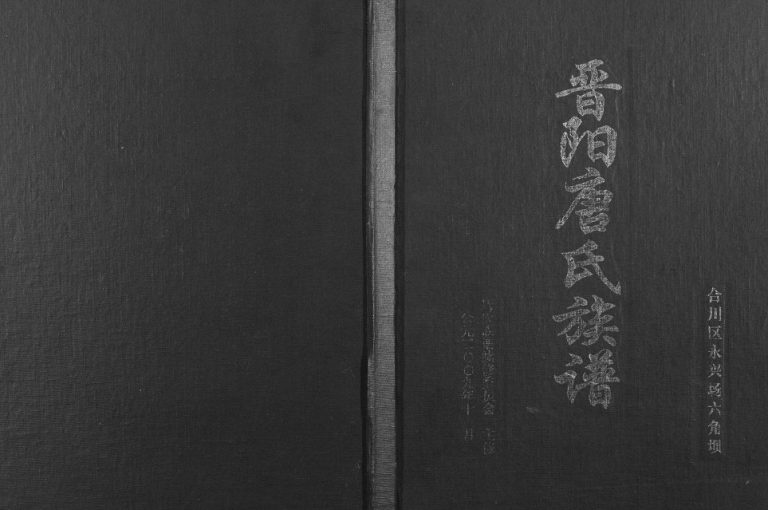 合川区永兴场六角坝
晋阳唐氏族谱
委员会 主修
公元二〇〇九年十月